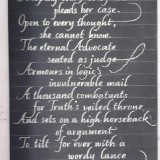 pleads her case.
Open to every thought,
she cannot know.
The eternal Advocate
seated as judge
Armours in logic's
invulnerable mail
A thousand combatants
for Truth's veiled throne
And sets on a high horseback
of argument
To tilt for ever with a
wordy lance